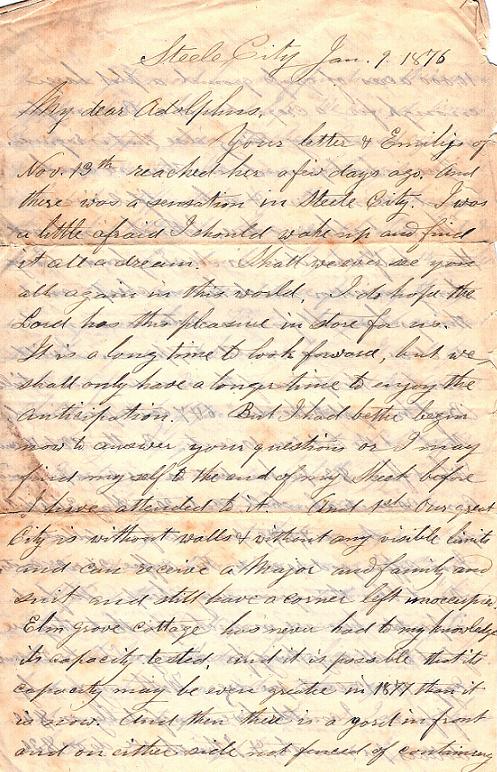 Steele City Jan. 9. 1876
My dear Adolphus,
Your letter & Emilys of
Nov. 13th reached her a few days ago, and
there was a sensation in Steele City. I was
a little afraid I should wake up and find
it all a dream. Shall we ever see you
all again in this world, I do hope the
Lord has this pleasure in store for us.
It is a long time to look forward, but we
shall only have a longer time to enjoy the
anticipation. But I had better begin
now to answer your questions or I may
find myself to the end of my sheet before
I have attended to it. And 1st Our great
City is without walls & without any visible limits
and can receive a Major and family and
suit and still have a corner left unoccupied
Elm grove cottage has never had to my knowledge
its capacity tested, and it is possible that its
capacity may be even greater in 1877 than it
is now. And then there is a yard in front
and on either side not fenced of containing